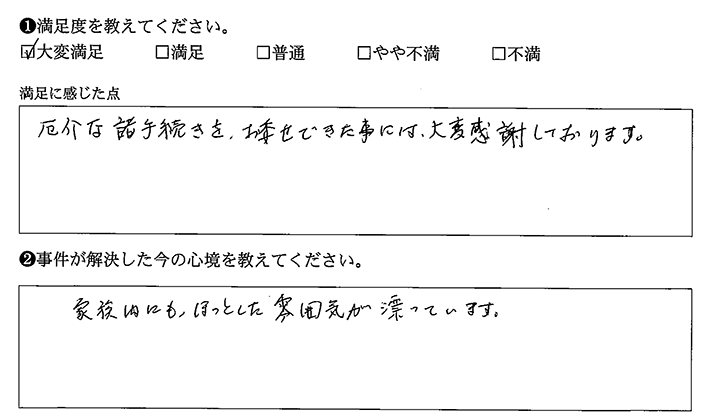 ❶満足度を教えてください。
☑大変満足 □満足 □普通 □やや不満 □不満
満足に感じた点
厄介な諸手続きを、お委せできた事には、大変感謝しております。
❷事件が解決した今の心境を教えてください。
家族内にも、ほっとした雰囲気が漂っています。